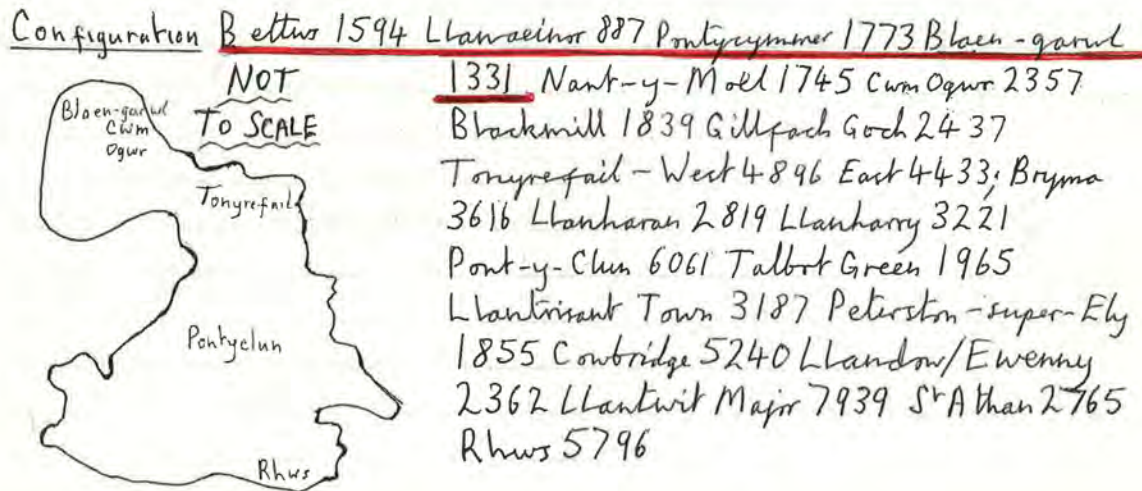 Configuration Bettws 1594 Llanaeinor 887 Pontycymmer 1773 Blaen-garwl
NOT
TO SCALE
1331 Nant-y-Moel 1745 Cwm Ogwr 2357
Blackmill 1839 Gillfach Goch 2437
Tonyrefail - West 4896 East 4433; Bryma
3616 Llanharan 2819 Llanharry 3221
Pont-y-Clun 6061 Talbot Green 1965
Llantrisant Town 3187 Peterston-super-Ely
1855 Cowbridge 5240 Llandow/Ewenny
2362 Llantwit Major 7939 St Athan 2765
Rhws 5796
Blaen-garwl
Cwm
Ogwr
Tonyrefail
Pontyclun
Rhws